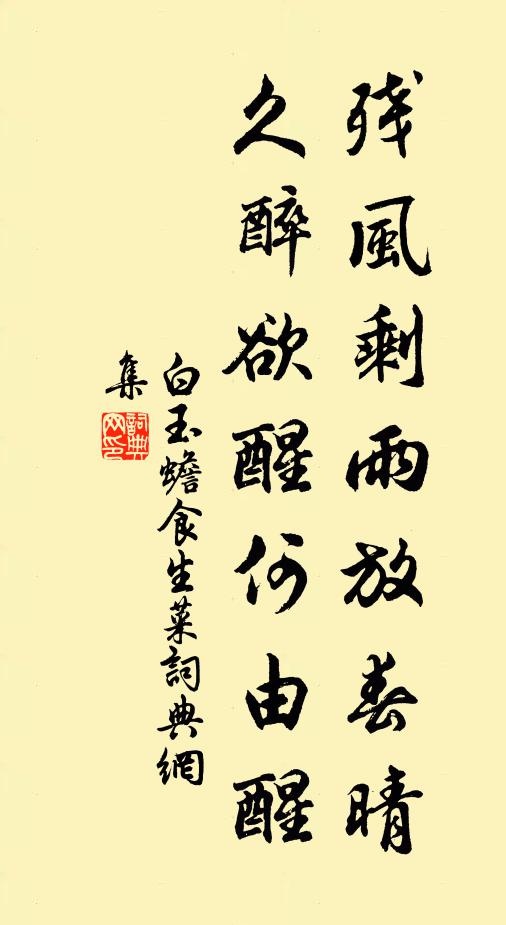 残風剩雨放春晴
久醉欲醒何由醒
白玉蟾食生菜詞典網
集
詞典網印